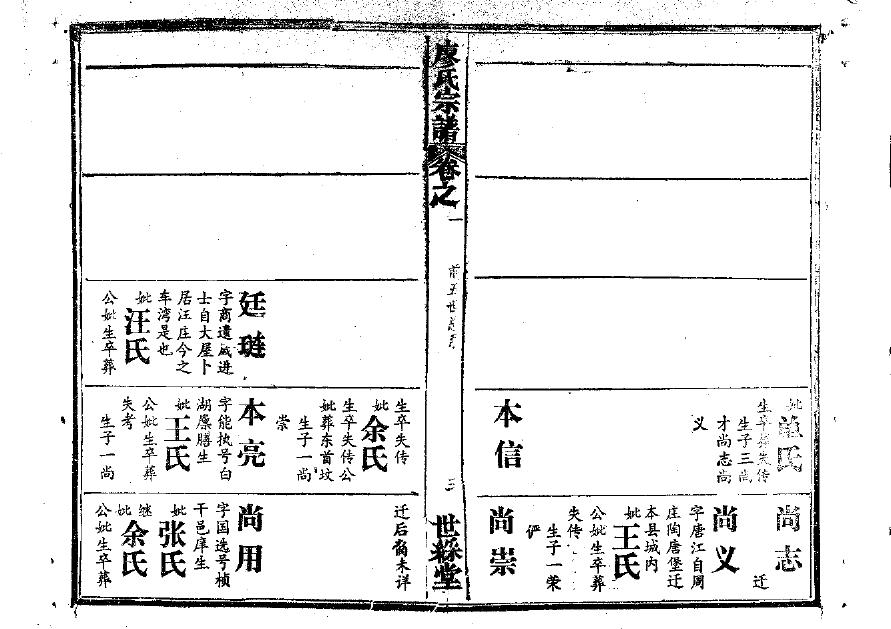 妣
氏
生卒葬失传
生子三尚
才尚志尚
义
本信
尚志
迁
尚义
字唐江自周
庄陶唐堡迁
本县城内
妣王氏
公妣生卒葬
失传
生子一荣
俨
尚崇
廖氏宗譜卷之一
前五世
三
世綵堂
廷琏
字商遗咸进
士自大屋卜
居汪庄今之
车湾是也
妣汪氏
公妣生卒葬
生卒失传
妣余氏
生卒失传公
妣葬东首坟
生子一尚
崇
本亮
字能执号白
湖廪膳生
妣王氏
公妣生卒葬
失考
生子一尚
迁后裔未详
尚用
字国选号桢
干邑庠生
妣张氏
继妣余氏
公妣生卒葬